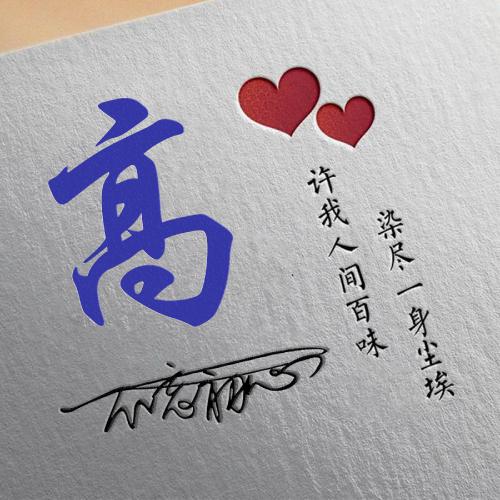 高
许我人间百味
染尽一身尘埃